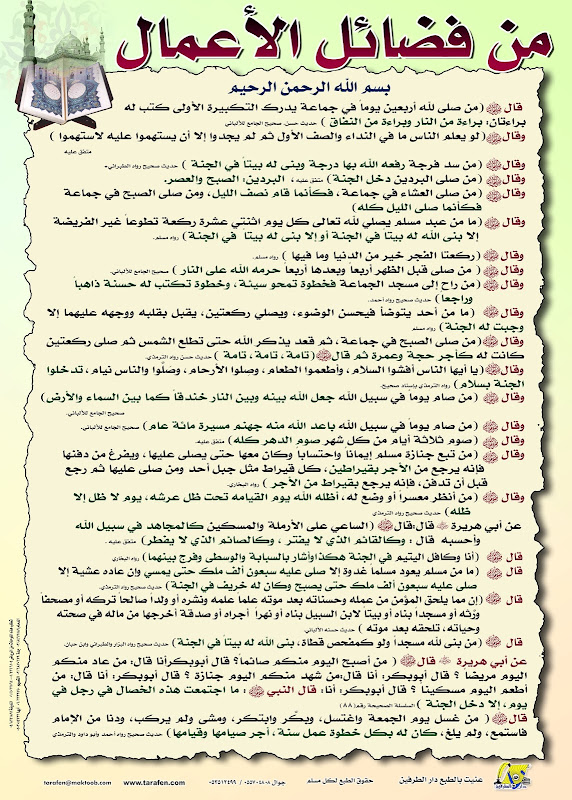 من فضائل الأعمال
بسم الله الرحمن الرحيم
قال ﷺ (من صلى لله أربعين يوماً في جماعة يدرك التكبيرة الأولى كتب له
براءتان: براءة من النار وبراءة من النفاق ) حديث حسن. صحيح الجامع للألباني
وقال ﷺ (لو يعلم الناس ما في النداء والصف الأول ثم لم يجدوا إلا أن يستهموا عليه لاستهموا )
متفق عليه
وقال ﷺ (من سد فرجة رفعه الله بها درجة وبنى له بيتاً في الجنة ) حديث صحيح رواه الطبراني
وقال ﷺ (من صلى البردين دخل الجنة) متفق عليه ، البردين: الصبح والعصر.
وقال ﷺ (من صلى العشاء في جماعة، فكأنما قام نصف الليل، ومن صلى الصبح في جماعة
فكأنما صلى الليل كله)
وقال ﷺ (ما من عبد مسلم يصلي لله تعالى كل يوم اثنتي عشرة ركعة تطوعاً غير الفريضة
إلا بنى الله له بيتاً في الجنة أو إلا بنى له بيتاً في الجنة ) رواه مسلم.
وقال ﷺ (ركعتا الفجر خير من الدنيا وما فيها ) رواه مسلم.
وقال ﷺ ( من صلى قبل الظهر أربعاً وبعدها أربعاً حرمه الله على النار ) صحيح الجامع للألباني.
وقال ﷺ (من راح إلى مسجد الجماعة فخطوة تمحو سيئة، وخطوة تكتب له حسنة ذاهباً
وراجعا ) حديث صحيح رواه أحمد.
وقال ﷺ ( ما من أحد يتوضأ فيحسن الوضوء، ويصلي ركعتين، يقبل بقلبه ووجهه عليهما إلا
وجبت له الجنة) رواه مسلم
وقال ﷺ (من صلى الصبح في جماعة، ثم قعد يذكر الله حتى تطلع الشمس ثم صلى ركعتين
كانت له كأجر حجة وعمرة ثم قال ﷺ (تامة، تامة، تامة ) حديث حسن رواه الترمذي.
وقال ﷺ (يا أيها الناس أفشوا السلام، وأطعموا الطعام، وصلوا الأرحام، وصلّوا والناس نيام، تدخلوا
الجنة بسلام) رواه الترمذي بإسناد صحيح.
وقال ﷺ (من صام يوماً في سبيل الله جعل الله بينه وبين النار خندقاً كما بين السماء والأرض)
صحيح الجامع للألباني.
وقال ﷺ (من صام يوماً في سبيل الله باعد الله منه جهنم مسيرة مائة عام) صحيح الجامع للألباني.
وقال ﷺ (صوم ثلاثة أيام من كل شهر صوم الدهر كله) متفق عليه.
وقال ﷺ (من تبع جنازة مسلم إيماناً واحتساباً وكان معها حتى يصلى عليها، ويفرغ من دفنها
فإنه يرجع من الأجر بقيراطين، كل قيراط مثل جبل أحد ومن صلى عليها ثم رجع
قبل أن تدفن، فإنه يرجع بقيراط من الأجر ) رواه البخاري.
وقال ﷺ (من أنظر معسراً أو وضع له، أظله الله يوم القيامه تحت ظل عرشه، يوم لا ظل إلا
ظله) حديث صحيح رواه الترمذي
عن أبي هريرة قال:قال ﷺ (الساعي على الأرملة والمسكين كالمجاهد في سبيل الله
وأحسبه قال : وكالقائم الذي لا يفتر ، وكالصائم الذي لا يفطر) متفق عليه .
قال ﷺ (أنا وكافل اليتيم في الجنة هكذا وأشار بالسبابة والوسطى وفرج بينهما) رواه البخاري
قال ﷺ (ما من مسلم يعود مسلماً غدوة إلا صلى عليه سبعون ألف ملك حتى يمسي وإن عاده عشية إلا
صلى عليه سبعون ألف ملك حتى يصبح وكان له خريف في الجنة) حديث صحيح رواه الترمذي.
قال ﷺ (إن مما يلحق المؤمن من عمله وحسناته بعد موته علما علمه ونشره أو ولداً صالحاً تركه أو مصحفاً
ورّثه أو مسجداً بناه أو بيتا لابن السبيل بناه أو نهراً أجراه أو صدقة أخرجها من ماله في صحته
وحياته، تلحقه بعد موته ) حديث حسنه الألباني.
قال ﷺ ( من بنى لله مسجداً ولو كمفحص قطاة، بنى الله له بيتاً في الجنة) حديث صحيح رواه البزار والطبراني وابن حبان.
عن أبي هريرة قال ﷺ ( من أصبح اليوم منكم صائماً؟ قال أبوبكر أنا قال: من عاد منكم
اليوم مريضا ؟ قال أبوبكر: أنا قال:من شهد منكم اليوم جنازة ؟ قال أبوبكر: أنا قال: من
أطعم اليوم مسكينا ؟ قال أبوبكر: أنا، قال النبي ﷺ : ما اجتمعت هذه الخصال في رجل في
يوم، إلا دخل الجنة ) السلسلة الصحيحة رقم( ٨٨)
قال ﷺ ( من غسل يوم الجمعة واغتسل، وبكّر وابتكر، ومشى ولم يركب، ودنا من الإمام
فاستمع، ولم يلغ، كان له بكل خطوة عمل سنة، أجر صيامها وقيامها) حديث صحيح رواه أحمد وأبو داود والترمذي
عنيت بالطبع دار الطرفين
حقوق الطبع لكل مسلم
www.tarafen.com
tarafen@maktoob.com